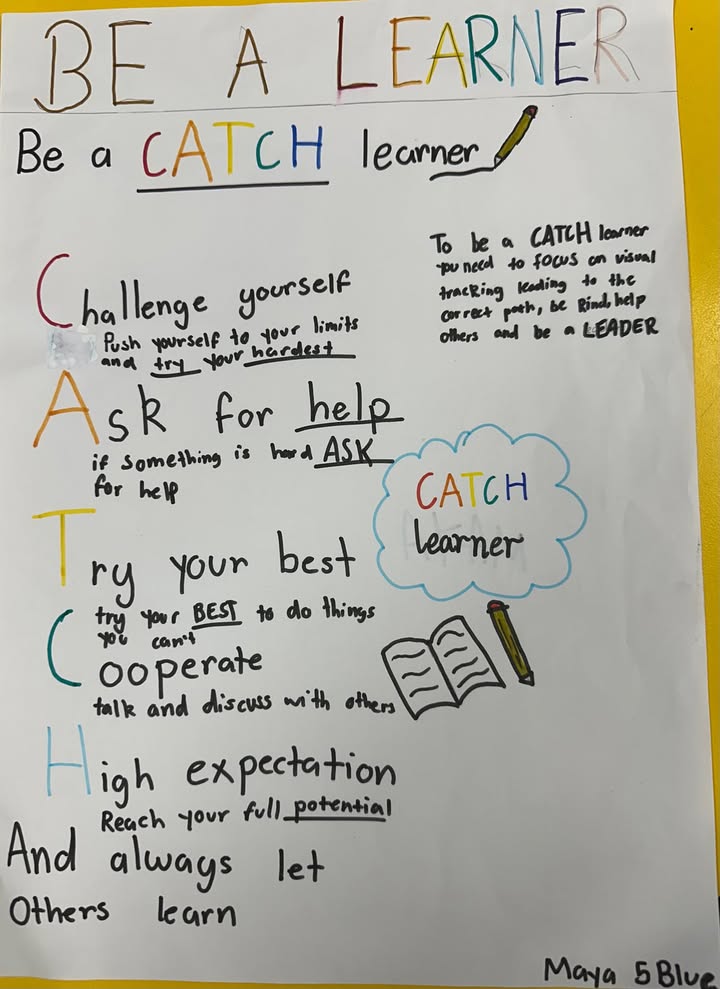 BE A LEARNER
Be a CATCH learner
To be a CATCH learner
you need to focus on visual
tracking leading to the
correct path, be kind, help
others and be a LEADER
Challenge yourself
Push yourself to your limits
and try your hardest
Ask for help
if something is hard ASK
for help
Try your best
try your BEST to do things
you can't
Cooperate
talk and discuss with others
High expectation
Reach your full potential
And always let
Others learn
CATCH
learner
Maya 5 Blue